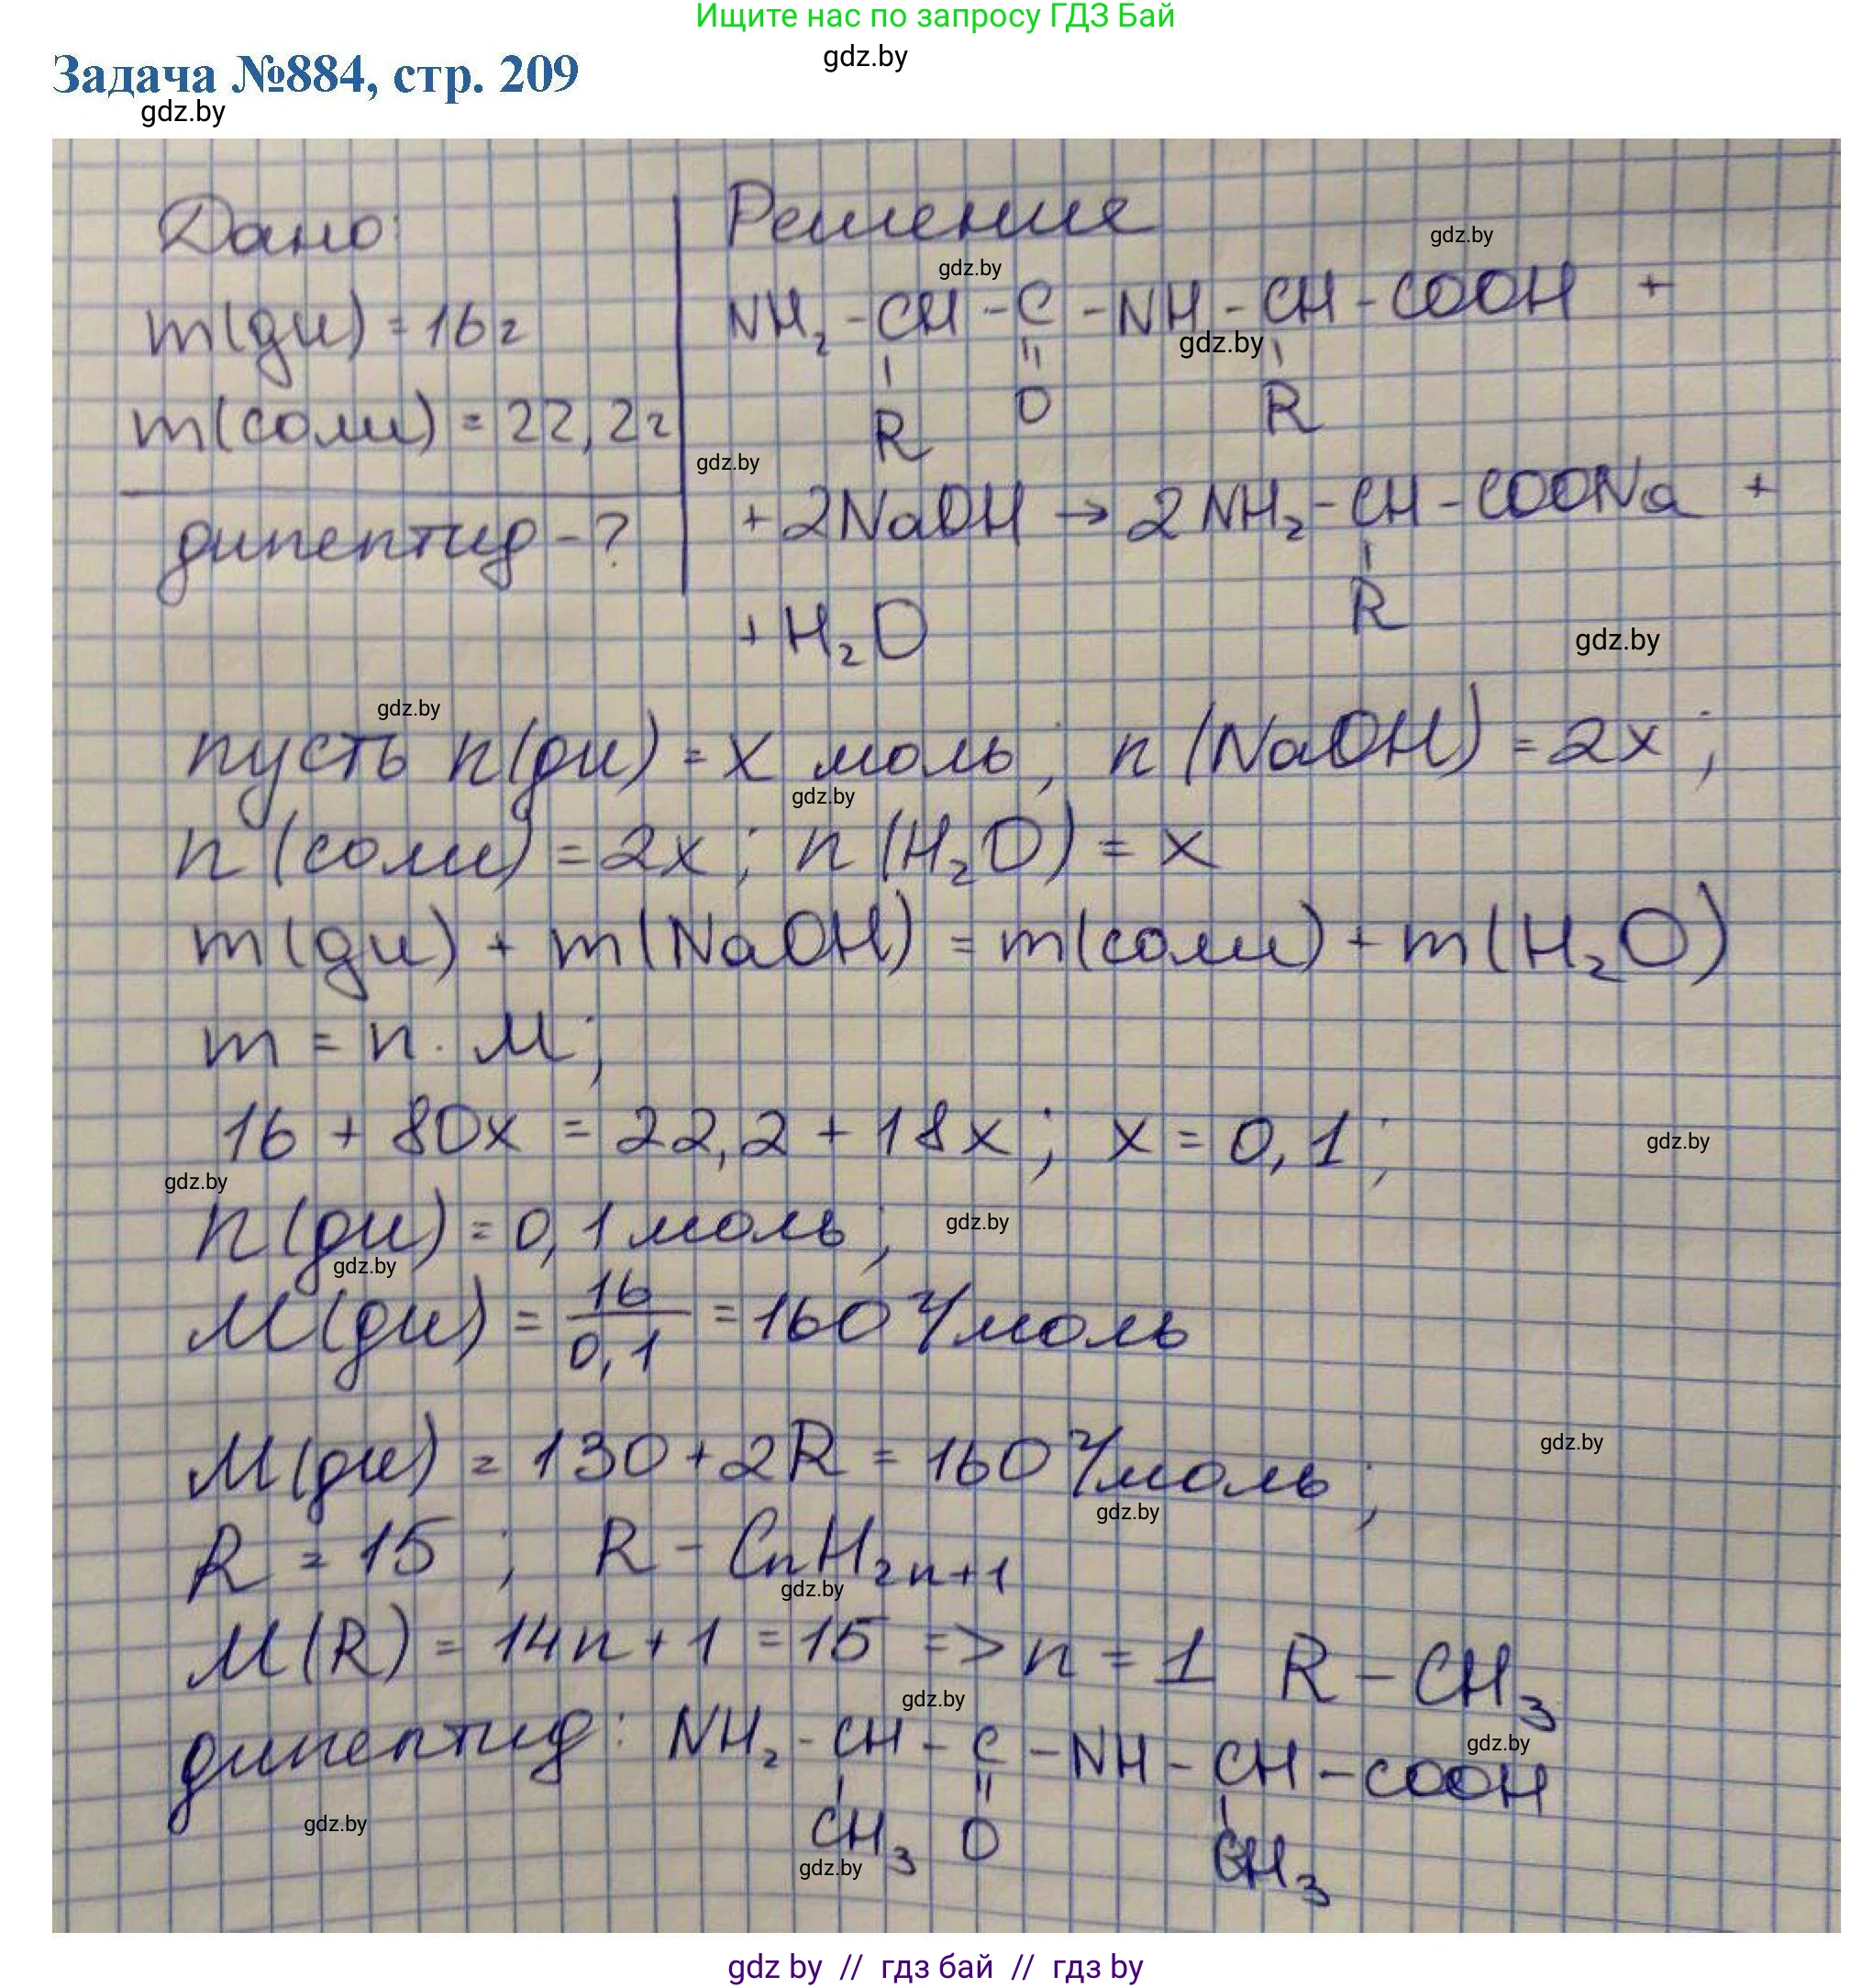 Ищите нас по запросу ГДЗ Бай
gdz.by
Задача №884, стр. 209
gdz.by
Дано:
m(ди) = 16г
m(соли) = 22,2г
дипептид - ?
Решение
gdz.by
gdz.by
NH₂ - CH - C - NH - CH - COOH +
gdz.by
R O R
gdz.by
+ 2NaOH → 2NH₂ - CH - COONa +
R
+ H₂O
gdz.by
gdz.by
пусть n(ди) = x моль; n(NaOH) = 2x;
gdz.by
n(соли) = 2x; n(H₂O) = x
m(ди) + m(NaOH) = m(соли) + m(H₂O)
m = n · M;
16 + 80x = 22,2 + 18x; x = 0,1;
gdz.by
gdz.by
n(ди) = 0,1 моль;
gdz.by
gdz.by
M(ди) = 16/0,1 = 160 г/моль
gdz.by
M(ди) = 130 + 2R = 160 г/моль;
gdz.by
R = 15; R - CnH2n+1
gdz.by
M(R) = 14n + 1 = 15 => n = 1 R - CH₃
gdz.by
дипептид: NH₂ - CH - C - NH - CH - COOH
gdz.by
CH₃ O CH₃
gdz.by
gdz.by
gdz by // гдз бай // гдз by